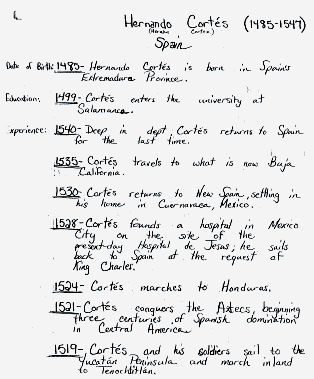 Hernando Cortés (1485-1547)
Spain
Date of Birth: 1485- Hernando Cortés is born in Spain's
Extremadura Province.
Education: 1499- Cortés enters the university at
Salamanca.
xperience: 1540- Deep in dept, Cortés returns to Spain
for the last time.
1535- Cortés travels to what is now Baja
California.
1530- Cortés returns to New Spain, settling in
his home in Cuernavaca, Mexico.
1528- Cortés founds a hospital in Mexico
City on the site of the
present-day Hospital de Jesus; he sails
back to Spain at the request of
King Charles.
1524- Cortés marches to Honduras.
1521- Cortés conquers the Aztecs, beginning
three centuries of Spanish domination
in Central America
1519- Cortés and his soldiers sail to the
Yucatán Peninsula and march inland
to Tenochtitlán.